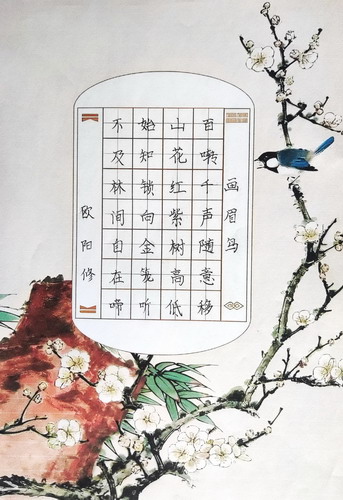 画眉鸟
百啭千声随意移
山花红紫树高低
始知锁向金笼听
不及林间自在啼
欧阳修